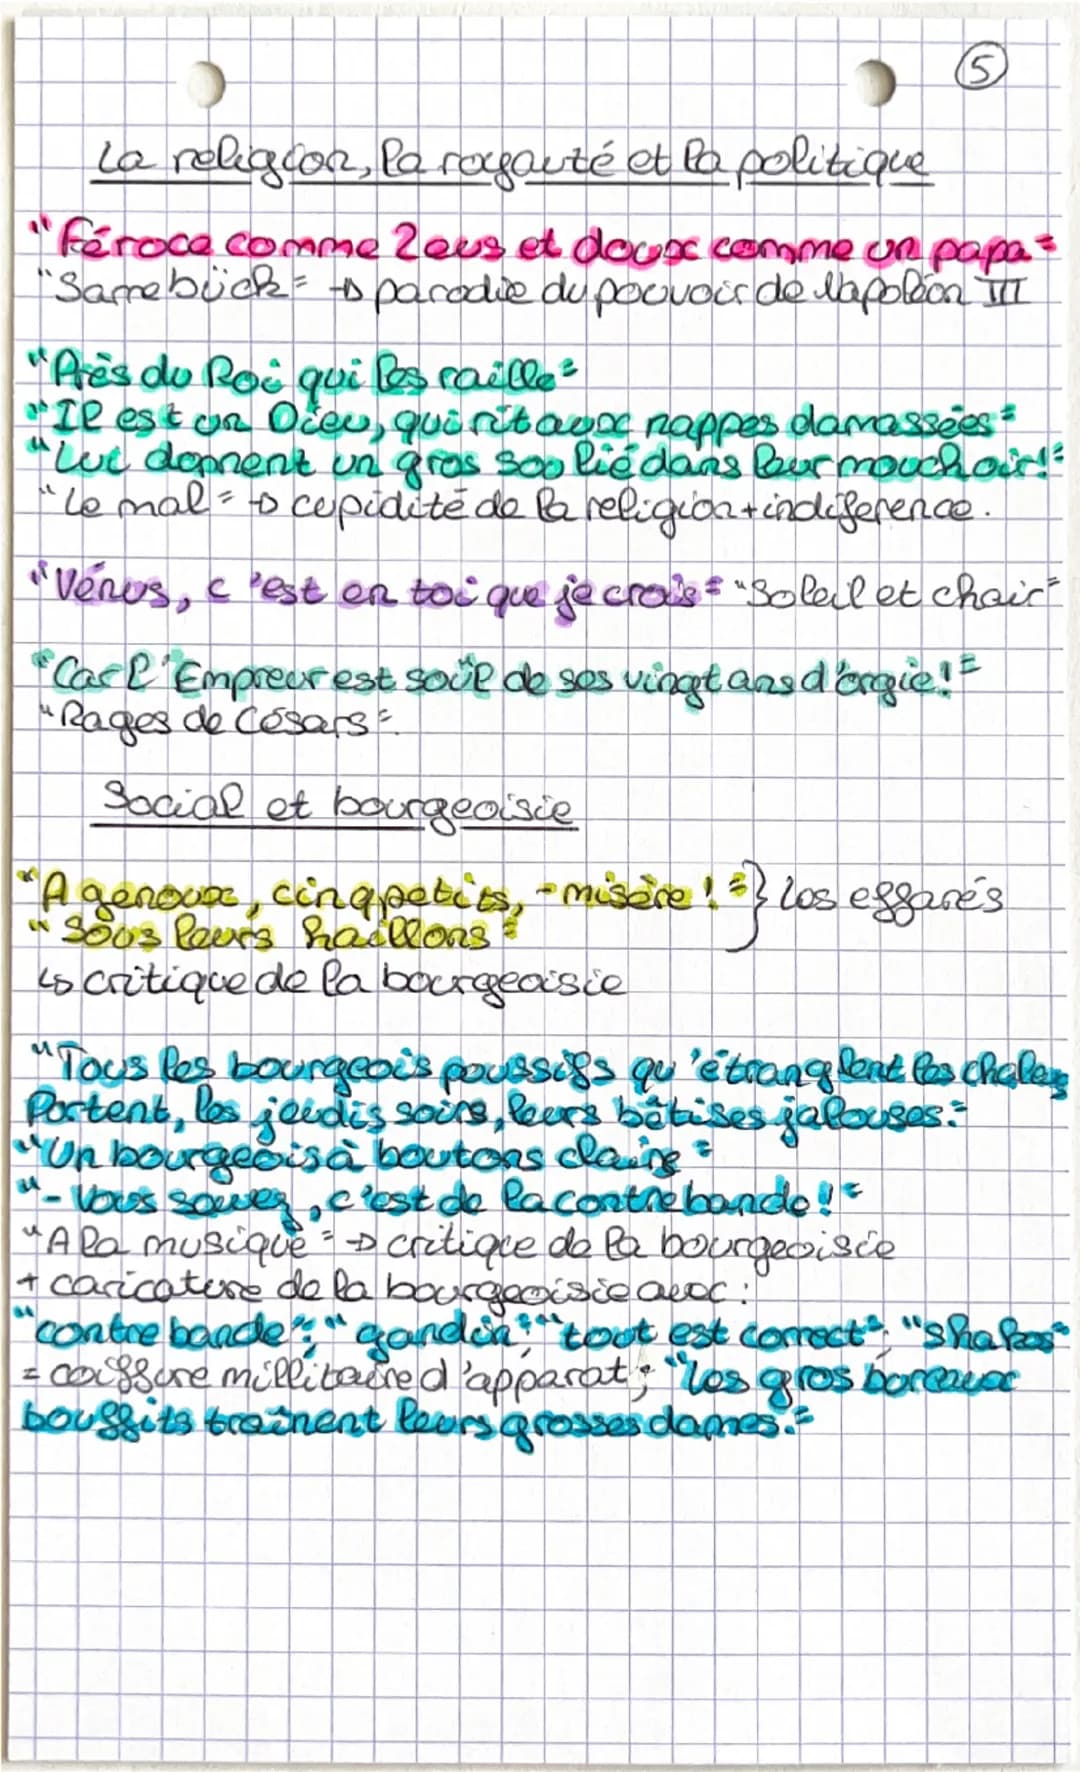 5
La religion, la royauté et la politique
"Féroce comme Zeus et doux comme un papa"
"Sarrebück" → parodie du pouvoir de Napoléon III
"Près du Roi qui les raille"
"Il est un Dieu, qui rit aux nappes damassées"
"Lui donnent un gros sou lié dans leur mouchoir!"
"Le mal" → cupidité de la religion + indiference.
"Vénus, c'est en toi que je crois" "Soleil et chair"
"Car l'Empreur est soûl de ses vingt ans d'orgie!"
"Rages de Césars".
Social et bourgeoisie
"A genoux, cinq petits, - misère!" } Les effarés
"Sous leurs haillons"
↳ critique de la bourgeoisie
"Tous les bourgeois poussifs qu'étranglent les chaleurs
Portent, les jeudis soirs, leurs bêtises jalouses."
"Un bourgeois à boutons clairs"
"- Vous savez, c'est de la contrebande!"
"A la musique" → critique de la bourgeoisie
+ caricature de la bourgeoisie avec:
"contrebande"; "gandin"; "tout est correct"; "shakos"
= coiffure millitaire d'apparat; "Les gros bureaux
bouffits traînent leurs grosses dames."